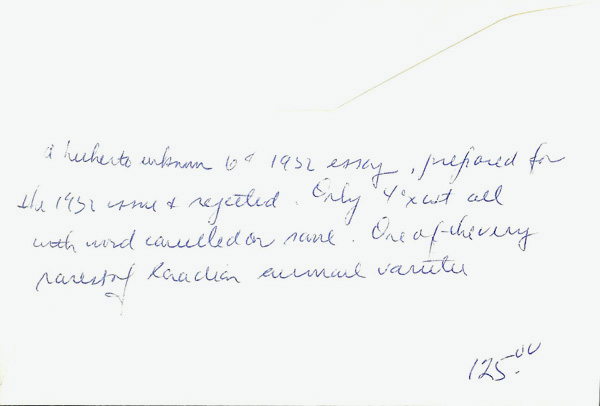 a hitherto unknown 6¢ 1932 essay, prepared for
the 1932 issue & rejected. Only 4 exist all
with word cancelled on same. One of the very
rarest of Canadian airmail varieties
125.00